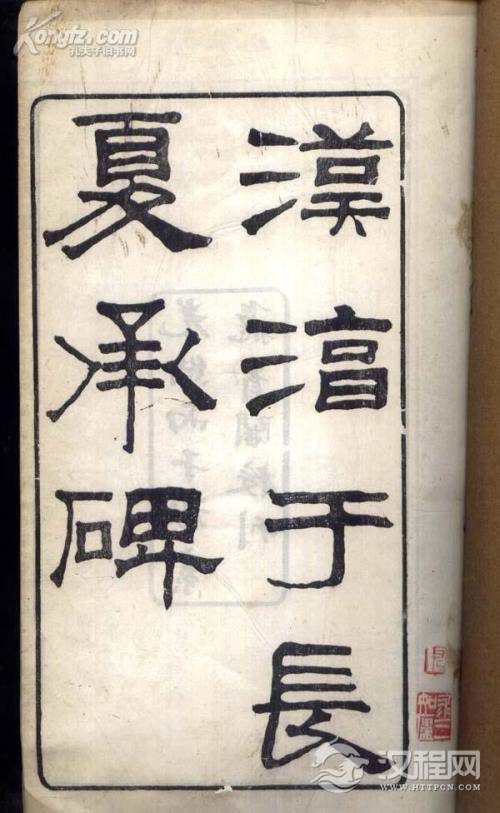 漢淳于長
夏承碑
Kongfz.com
孔夫子旧书网
汉程网
WWW.HTTPCN.COM